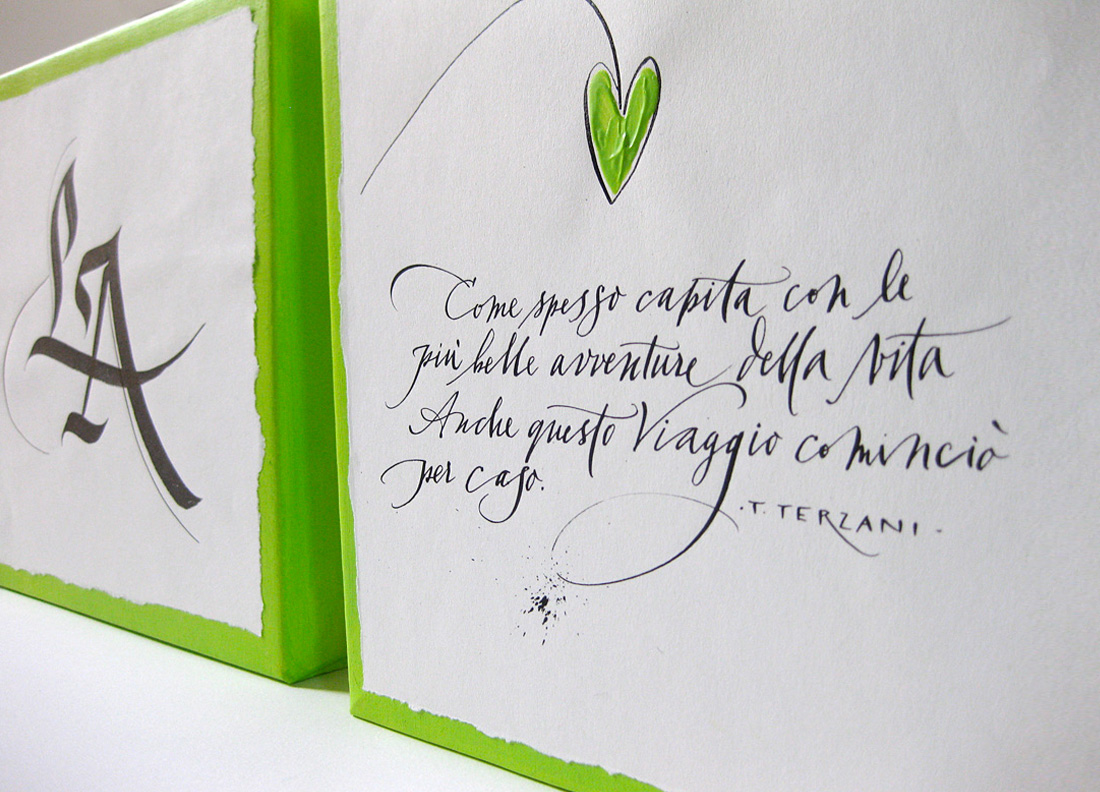 LA
Come spesso capita con le
più belle avventure della vita
Anche questo Viaggio cominciò
per caso.
·T. TERZANI·